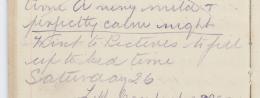 time A very mild &
perfectly calm night
Went to Pictures to fill
up to bed time
Saturday 26